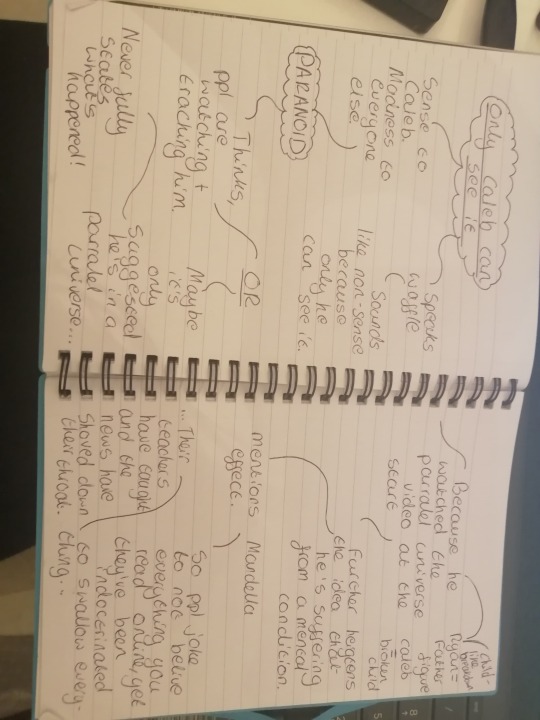 Only Caleb can
see it
Sense to
Caleb.
Madness to
everyone
else.
speaks
waffle
Sounds
like non-sense
because
only he
can see it.
PARANOID
Thinks,
ppl are
watching +
tracking him.
OR
Maybe
it's
only
suggested
he's in a
parralel
universe...
Never fully
states
what's
happened!
Because he
watched the
parralel universe
video at the
start
child-
like
Ryan =
Father
figure
Caleb
=
broken
child
Further
the idea that
he's suffering
from a mental
condition.
mentions Mandella
effect.
So ppl joke
to not belive
everything you
read online, yet
they've been
indoctrinated
to swallow every-
thing...
...Their
teachers
have taught
and the
news have
shoved down
their throat.